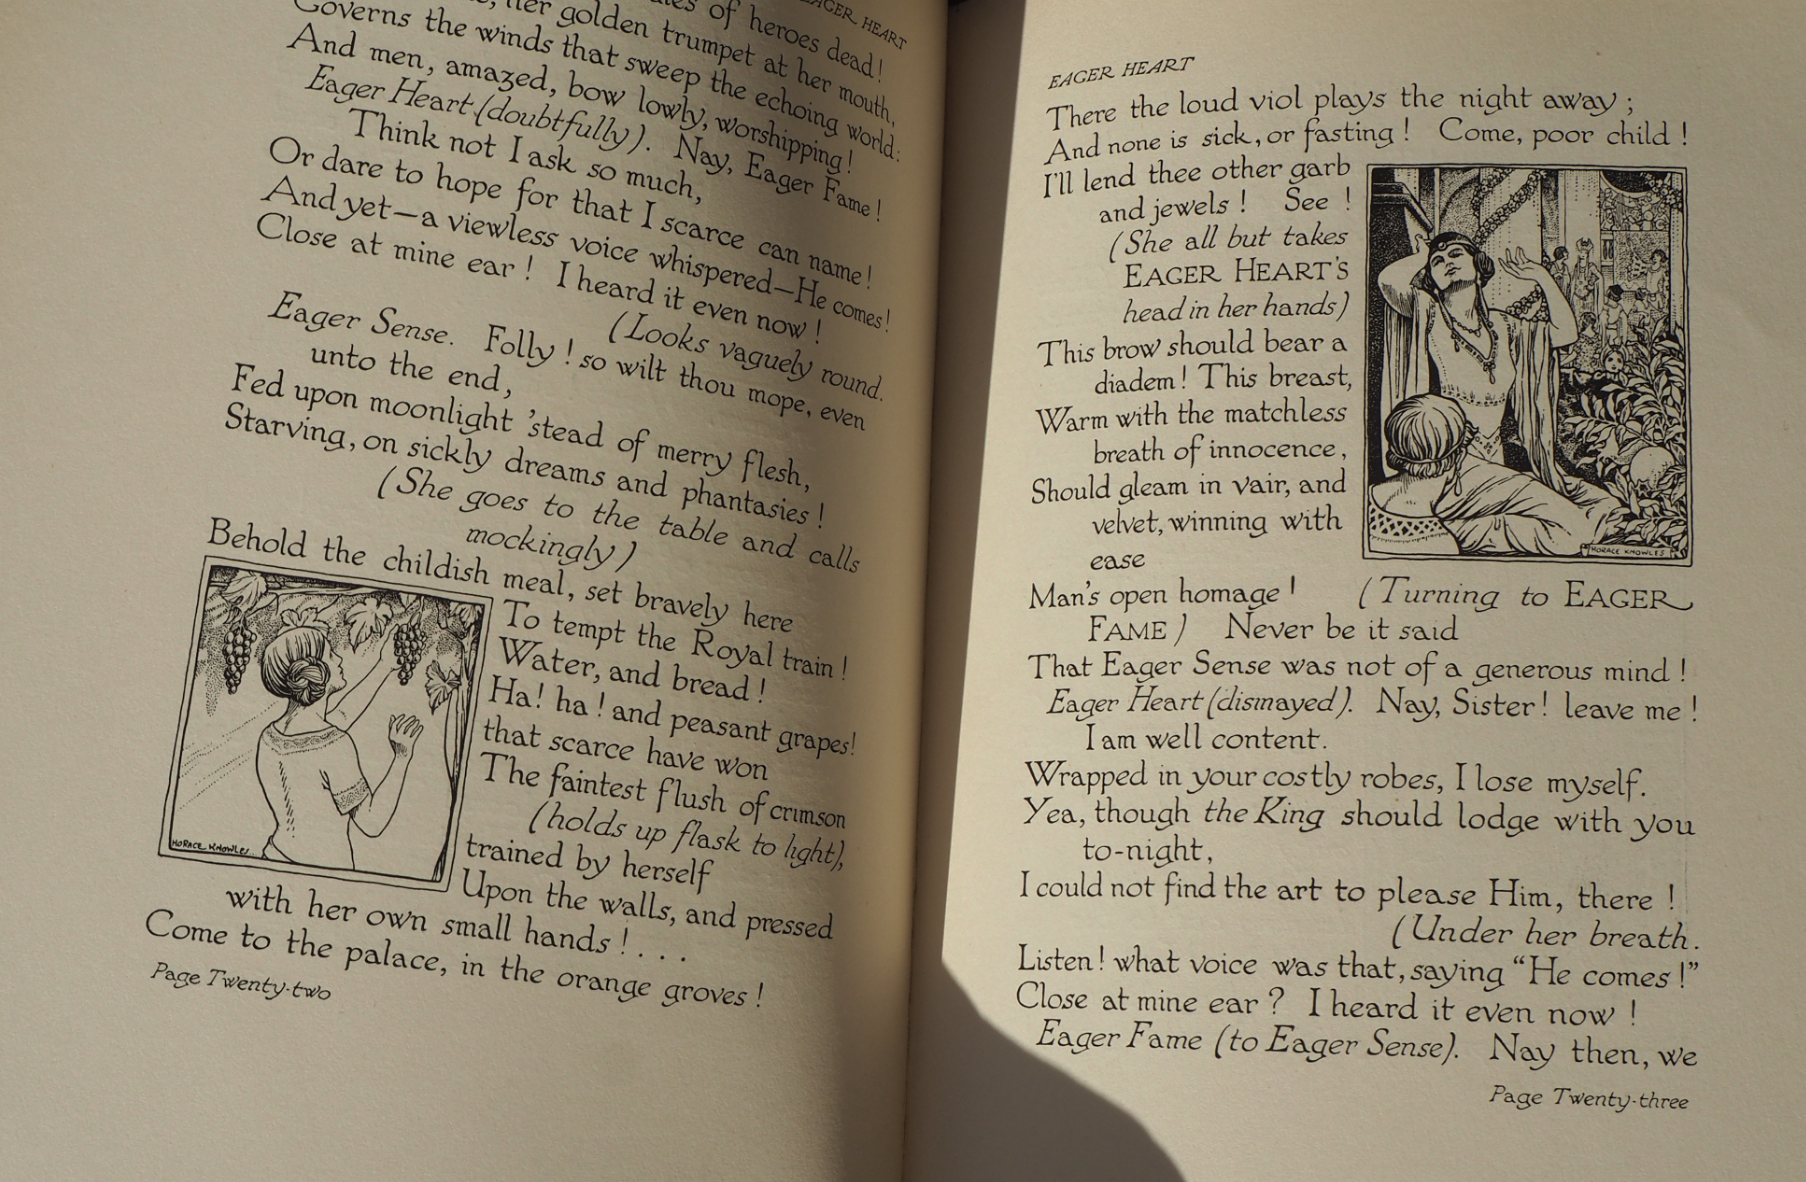 EAGER HEART
of heroes dead!
her golden trumpet at her mouth,
Governs the winds that sweep the echoing world:
And men, amazed, bow lowly, worshipping!
Eager Heart (doubtfully). Nay, Eager Fame!
Think not I ask so much,
Or dare to hope for that I scarce can name!
And yet—a viewless voice whispered—He comes!
Close at mine ear! I heard it even now!
(Looks vaguely round.
Eager Sense. Folly! so wilt thou mope, even
unto the end,
Fed upon moonlight 'stead of merry flesh,
Starving, on sickly dreams and phantasies!
(She goes to the table and calls
mockingly)
Behold the childish meal, set bravely here
To tempt the Royal train!
Water, and bread!
Ha! ha! and peasant grapes!
that scarce have won
The faintest flush of crimson
(holds up flask to light),
trained by herself
Upon the walls, and pressed
with her own small hands! . . . .
Come to the palace, in the orange groves!
HORACE KNOWLES
Page Twenty-two
EAGER HEART
There the loud viol plays the night away;
And none is sick, or fasting! Come, poor child!
I'll lend thee other garb
and jewels! See!
(She all but takes
EAGER HEART'S
head in her hands)
This brow should bear a
diadem! This breast,
Warm with the matchless
breath of innocence,
Should gleam in vair, and
velvet, winning with
ease
HORACE KNOWLES
Man's open homage! (Turning to EAGER
FAME) Never be it said
That Eager Sense was not of a generous mind!
Eager Heart (dismayed). Nay, Sister! leave me!
I am well content.
Wrapped in your costly robes, I lose myself.
Yea, though the King should lodge with you
to-night,
I could not find the art to please Him, there!
(Under her breath.
Listen! what voice was that, saying "He comes!"
Close at mine ear? I heard it even now!
Eager Fame (to Eager Sense). Nay then, we
Page Twenty-three